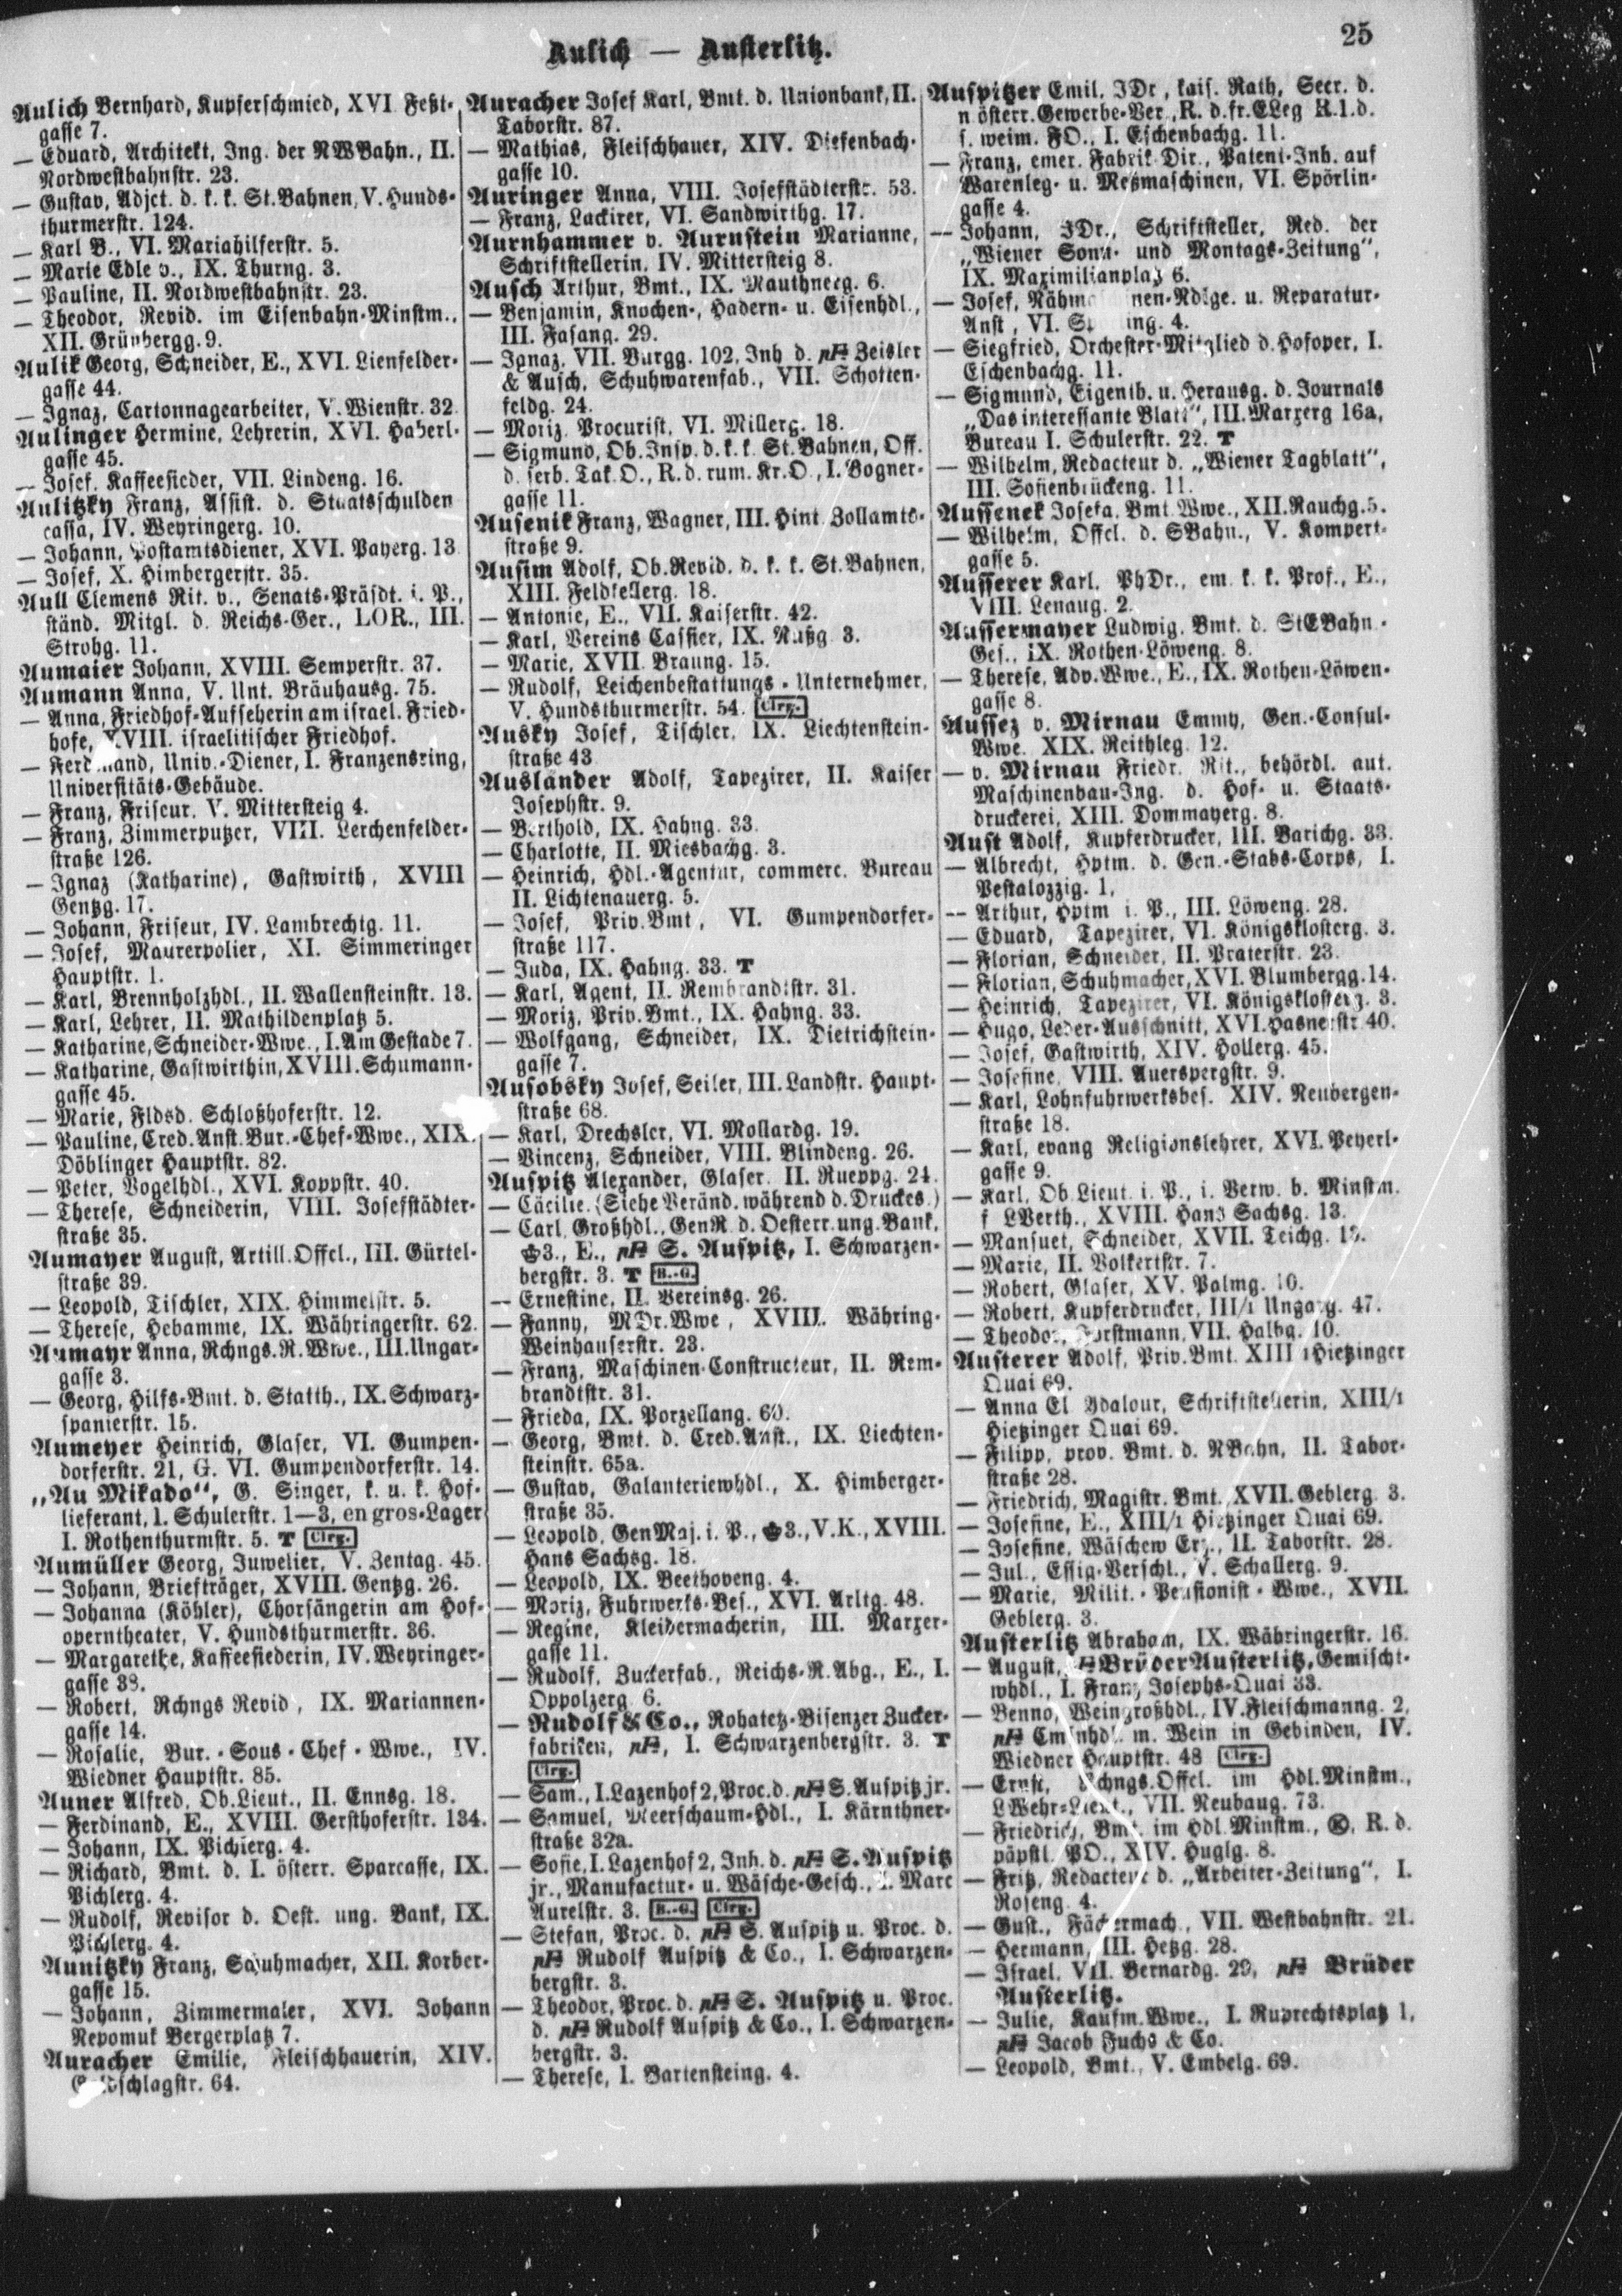 Aulich — Austerlitz.
25
Aulich Bernhard, Kupferschmied, XVI. Feßt-
gasse 7.
— Eduard, Architekt, Ing. der NWBahn., II.
Nordwestbahnstr. 23.
— Gustav, Adjct. d. k. k. St.Bahnen, V. Hunds-
thurmerstr. 124.
— Karl B., VI. Mariahilferstr. 5.
— Marie Edle v., IX. Thurng. 3.
— Pauline, II. Nordwestbahnstr. 23.
— Theodor, Revid. im Eisenbahn-Minstm.,
XII. Grünbergg. 9.
Aulik Georg, Schneider, E., XVI. Lienfelder-
gasse 44.
— Ignaz, Cartonnagearbeiter, V. Wienstr. 32.
Aulinger Hermine, Lehrerin, XVI. Haberl-
gasse 45.
— Josef, Kaffeesieder, VII. Lindeng. 16.
Aulitzky Franz, Assist. d. Staatsschulden
cassa, IV. Weyringerg. 10.
— Johann, Postamtsdiener, XVI. Payerg. 13.
— Josef, X. Himbergerstr. 35.
Aull Clemens Rit. v., Senats-Präsdt. i. P.,
ständ. Mitgl. d. Reichs-Ger., LOR., III.
Strohg. 11.
Aumaier Johann, XVIII. Semperstr. 37.
Aumann Anna, V. Unt. Bräuhausg. 75.
— Anna, Friedhof-Aufseherin am israel. Fried-
hofe, XVIII. israelitischer Friedhof.
— Ferdinand, Univ.-Diener, I. Franzensring,
Universitäts-Gebäude.
— Franz, Friseur, V. Mittersteig 4.
— Franz, Zimmerputzer, VIII. Lerchenfelder-
straße 126.
— Ignaz (Katharine), Gastwirth, XVIII
Gentzg. 17.
— Johann, Friseur, IV. Lambrechtg. 11.
— Josef, Maurerpolier, XI. Simmeringer
Hauptstr. 1.
— Karl, Brennholzhdl., II. Wallensteinstr. 13.
— Karl, Lehrer, II. Mathildenplatz 5.
— Katharine, Schneider-Wwe., I. Am Gestade 7.
— Katharine, Gastwirthin, XVIII. Schumann-
gasse 45.
— Marie, Fldsd. Schloßhoferstr. 12.
— Pauline, Cred.Anst.Bur.-Chef-Wwe., XIX.
Döblinger Hauptstr. 82.
— Peter, Vogelhdl., XVI. Koppstr. 40.
— Therese, Schneiderin, VIII. Josefstädter-
straße 35.
Aumayer August, Artill.Offcl., III. Gürtel-
straße 39.
— Leopold, Tischler, XIX. Himmelstr. 5.
— Therese, Hebamme, IX. Währingerstr. 62.
Aumayr Anna, Rchngs.R.Wwe., III. Ungar-
gasse 3.
— Georg, Hilfs-Bmt. d. Statth., IX. Schwarz-
spanierstr. 15.
Aumeyer Heinrich, Glaser, VI. Gumpen-
dorferstr. 21, G. VI. Gumpendorferstr. 14.
„Au Mikado“, G. Singer, k. u. k. Hof-
lieferant, I. Schulerstr. 1—3, en gros-Lager
I. Rothenthurmstr. 5. T Clrg.
Aumüller Georg, Juwelier, V. Zentag. 45.
— Johann, Briefträger, XVIII. Gentzg. 26.
— Johanna (Köhler), Chorsängerin am Hof-
operntheater, V. Hundsthurmerstr. 36.
— Margarethe, Kaffeesiederin, IV. Weyringer-
gasse 38.
— Robert, Rchngs Revid, IX. Mariannen-
gasse 14.
— Rosalie, Bur.-Sous-Chef-Wwe., IV.
Wiedner Hauptstr. 85.
Auner Alfred, Ob.Lieut., II. Ennsg. 18.
— Ferdinand, E., XVIII. Gersthoferstr. 134.
— Johann, IX. Pichlerg. 4.
— Richard, Bmt. d. I. österr. Sparcasse, IX.
Pichlerg. 4.
— Rudolf, Revisor d. Oest. ung. Bank, IX.
Pichlerg. 4.
Aunitzky Franz, Schuhmacher, XII. Korber-
gasse 15.
— Johann, Zimmermaler, XVI. Johann
Nepomuk Bergerplatz 7.
Auracher Emilie, Fleischhauerin, XIV.
Goldschlagstr. 64.
Auracher Josef Karl, Bmt. d. Unionbank, II.
Taborstr. 87.
— Mathias, Fleischhauer, XIV. Diefenbach-
gasse 10.
Auringer Anna, VIII. Josefstädterstr. 53.
— Franz, Lackirer, VI. Sandwirthg. 17.
Aurnhammer v. Aurnstein Marianne,
Schriftstellerin, IV. Mittersteig 8.
Ausch Arthur, Bmt., IX. Mauthnerg. 6.
— Benjamin, Knochen-, Hadern- u. Eisenhdl.,
III. Fasang. 29.
— Ignaz, VII. Burgg. 102, Inh. d. Zeisler
& Ausch, Schuhwarenfab., VII. Schotten-
feldg. 24.
— Moriz, Procurist, VI. Millerg. 18.
— Sigmund, Ob.Insp. d. k. k. St.Bahnen, Off.
d. serb. Tak.O., R. d. rum. Kr.O., I. Bogner-
gasse 11.
Ausenik Franz, Wagner, III. Hint. Zollamts-
straße 9.
Ausim Adolf, Ob.Revid. d. k. k. St.Bahnen,
XIII. Feldkellerg. 18.
— Antonie, E., VII. Kaiserstr. 42.
— Karl, Vereins Cassier, IX. Nußg. 3.
— Marie, XVII. Braung. 15.
— Rudolf, Leichenbestattungs-Unternehmer,
V. Hundsthurmerstr. 54. Clrg.
Ausky Josef, Tischler, IX. Liechtenstein-
straße 43
Ausländer Adolf, Tapezirer, II. Kaiser
Josephstr. 9.
— Berthold, IX. Hahng. 33.
— Charlotte, II. Miesbachg. 3.
— Heinrich, Hdl.-Agentur, commerc. Bureau
II. Lichtenauerg. 5.
— Josef, Priv.Bmt, VI. Gumpendorfer-
straße 117.
— Juda, IX. Hahng. 33. T
— Karl, Agent, II. Rembrandtstr. 31.
— Moriz, Priv.Bmt., IX. Hahng. 33.
— Wolfgang, Schneider, IX. Dietrichstein-
gasse 7.
Ausobsky Josef, Seiler, III. Landstr. Haupt-
straße 68.
— Karl, Drechsler, VI. Mollardg. 19.
— Vincenz, Schneider, VIII. Blindeng. 26.
Auspitz Alexander, Glaser, II. Rueppg. 24.
— Cäcilie. (Siehe Veränd. während d. Druckes.)
— Carl, Großhdl., GenR. d. Oesterr. ung. Bank,
3., E., S. Auspitz, I. Schwarzen-
bergstr. 3. T H.-G.
— Ernestine, II. Vereinsg. 26.
— Fanny, MDr.Wwe, XVIII. Währing-
Weinhauserstr. 23.
— Franz, Maschinen-Constructeur, II. Rem-
brandtstr. 31.
— Frieda, IX. Porzellang. 60.
— Georg, Bmt. d. Cred.Anst., IX. Liechten-
steinstr. 65a.
— Gustav, Galanteriewhdl., X. Himberger-
straße 35.
— Leopold, GenMaj. i. P., 3., V.K., XVIII.
Hans Sachsg. 18.
— Leopold, IX. Beethoveng. 4.
— Moriz, Fuhrwerks-Bes., XVI. Arltg. 48.
— Regine, Kleidermacherin, III. Marxer-
gasse 11.
— Rudolf, Zuckerfab., Reichs-R. Abg., E., I.
Oppolzerg. 6.
— Rudolf & Co., Rohatetz-Bisenzer Zucker-
fabriken, I. Schwarzenbergstr. 3. T
Clrg.
— Sam., I. Lazenhof 2, Proc. d. S. Auspitz jr.
— Samuel, Meerschaum-Hdl., I. Kärnthner-
straße 32a.
— Sofie, I. Lazenhof 2, Inh. d. S. Auspitz
jr., Manufactur- u. Wäsche-Gesch., I. Marc
Aurelstr. 3. H.-G. Clrg.
— Stefan, Proc. d. S. Auspitz u. Proc. d.
Rudolf Auspitz & Co., I. Schwarzen-
bergstr. 3.
— Theodor, Proc. d. S. Auspitz u. Proc.
d. Rudolf Auspitz & Co., I. Schwarzen-
bergstr. 3.
— Therese, I. Bartensteing. 4.
Auspitzer Emil, JDr, kais. Rath, Secr. d.
n österr. Gewerbe-Ver., R. d. fr. ELeg R.1.d.
s. weim. FO., I. Eschenbachg. 11.
— Franz, emer. Fabrik Dir., Patent-Inh. auf
Warenleg- u. Mesmaschinen, VI. Spörlin-
gasse 4.
— Johann, JDr., Schriftsteller, Red. der
„Wiener Sonn- und Montags-Zeitung“,
IX. Maximilianplatz 6.
— Josef, -Ndlge. u. Reparatur-
Anst, VI. 4.
— Siegfried, Orchester-Mitglied d. Hofoper, I.
Eschenbachg. 11.
— Sigmund, Eigenth. u. Herausg. d. Journals
„Das interessante Blatt“, III. Marxerg 16a,
Bureau I. Schulerstr. 22. T
— Wilhelm, Redacteur d. „Wiener Tagblatt“,
III. Sofienbrückeng. 11.
Aussenek Josefa, Bmt. Wwe., XII. Rauchg. 5.
— Wilhelm, Offcl. d. SBahn., V. Kompert-
gasse 5.
Ausserer Karl, PhDr., em. k. k. Prof., E.,
VIII. Lenaug. 2.
Aussermayer Ludwig, Bmt. d. StEBahn.-
Ges., IX. Rothen-Löweng. 8.
— Therese, Adv.Wwe., E., IX. Rothen-Löwen-
gasse 8.
Aussez v. Mirnau Emmy, Gen.-Consul-
Wwe. XIX. Reithleg. 12.
— v. Mirnau Friedr. Rit., behördl. aut.
Maschinenbau-Ing. d. Hof- u. Staats-
druckerei, XIII. Dommayerg. 8.
Aust Adolf, Kupferdrucker, III. Barichg. 33.
— Albrecht, Hptm. d. Gen.-Stabs-Corps, I.
Pestalozzig. 1.
— Arthur, Hptm i. P., III. Löweng. 28.
— Eduard, Tapezirer, VI. Königsklosterg. 3.
— Florian, Schneider, II. Praterstr. 23.
— Florian, Schuhmacher, XVI. Blumbergg. 14.
— Heinrich, Tapezirer, VI. Königsklosterg. 3.
— Hugo, Leder-Ausschnitt, XVI. Hasnerstr 40.
— Josef, Gastwirth, XIV. Hollerg. 45.
— Josefine, VIII. Auerspergstr. 9.
— Karl, Lohnfuhrwerksbes. XIV. Neubergen-
straße 18.
— Karl, evang Religionslehrer, XVI. Peyerl-
gasse 9.
— Karl, Ob Lieut. i. P., i. Verw. b. Minstm.
f LVerth., XVIII. Hans Sachsg. 13.
— Mansuet, Schneider, XVII. Teichg.
— Marie, II. Volkertstr. 7.
— Robert, Glaser, XV. Palmg. 10.
— Robert, Kupferdrucker, III/1 Ungarg. 47.
— Theodor, Forstmann, VII. Halbg. 10.
Austerer Adolf, Priv.Bmt. XIII 1 Hietzinger
Quai 69.
— Anna El Ydalour, Schriftstellerin, XIII/1
Hietzinger Quai 69.
— Filipp, prov. Bmt. d. NBahn, II. Tabor-
straße 28.
— Friedrich, Magistr. Bmt., XVII. Geblerg. 3.
— Josefine, E., XIII/1 Hietzinger Quai 69.
— Josefine, Wäschew Erz., II. Taborstr. 28.
— Jul., Essig-Verschl., V. Schallerg. 9.
— Marie, Milit.-Pensionist-Wwe., XVII.
Geblerg. 3.
Austerlitz Abraham, IX. Währingerstr. 16.
— August, Brüder Austerlitz, Gemischt-
whdl., I. Franz Josephs-Quai 33.
— Benno, Weingroßhdl., IV. Fleischmanng. 2,
m. Wein in Gebinden, IV.
Wiedner Hauptstr. 48 Clrg.
— Ernst, Rchngs.Offcl. im Hdl.Minstm.,
LWehr-Lieut., VII. Neubaug. 73.
— Friedrich, Bmt. im Hdl.Minstm., R. d.
päpstl. PO., XIV. Huglg. 8.
— Fritz, Redacteur d. „Arbeiter-Zeitung“, I.
Roseng. 4.
— Gust., Fächermach., VII. Westbahnstr. 21.
— Hermann, III. Hetzg. 28.
— Israel, VII. Bernardg. 29, Brüder
Austerlitz.
— Julie, Kaufm.Wwe., I. Ruprechtsplatz 1,
Jacob Fuchs & Co.
— Leopold, Bmt., V. Embelg. 69.